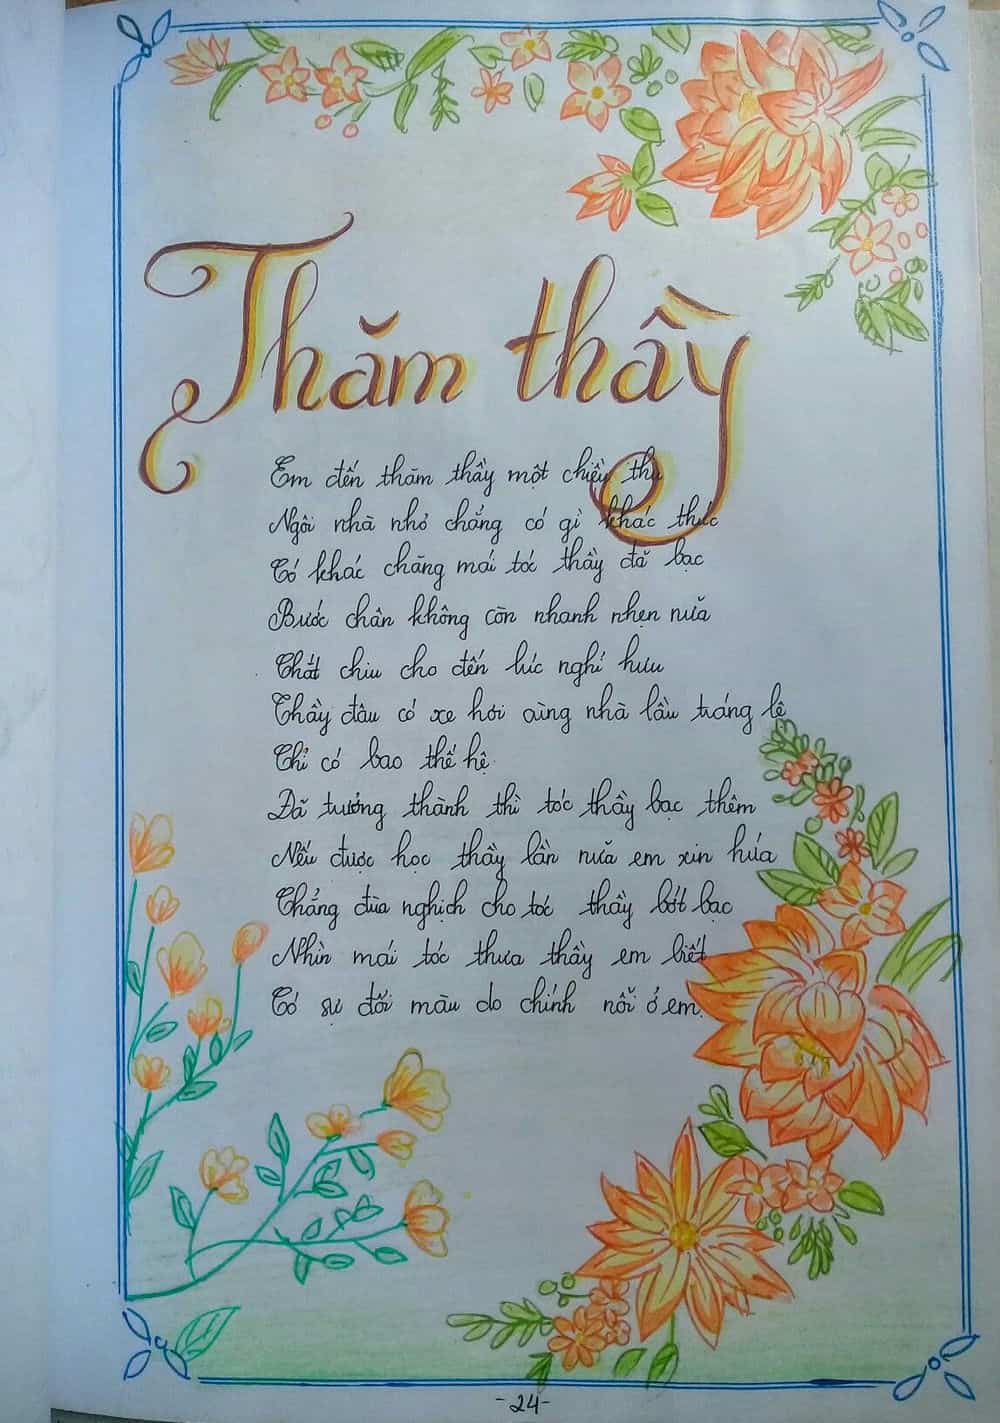 Thăm thầy
Em đến thăm thầy một chiều thu
Ngôi nhà nhỏ chẳng có gì khác thức
Có khác chăng mái tóc thầy đã bạc
Bước chân không còn nhanh nhẹn nữa
Chắt chiu cho đến lúc nghỉ hưu
Thầy đâu có xe hơi cùng nhà lầu tráng lệ
Chỉ có bao thế hệ
Đã trưởng thành thì tóc thầy bạc thêm
Nếu được học thầy lần nữa em xin hứa
Chẳng đùa nghịch cho tóc thầy bớt bạc
Nhìn mái tóc thưa thầy em biết
Có sự đổi màu do chính nỗi ở em.
-24-